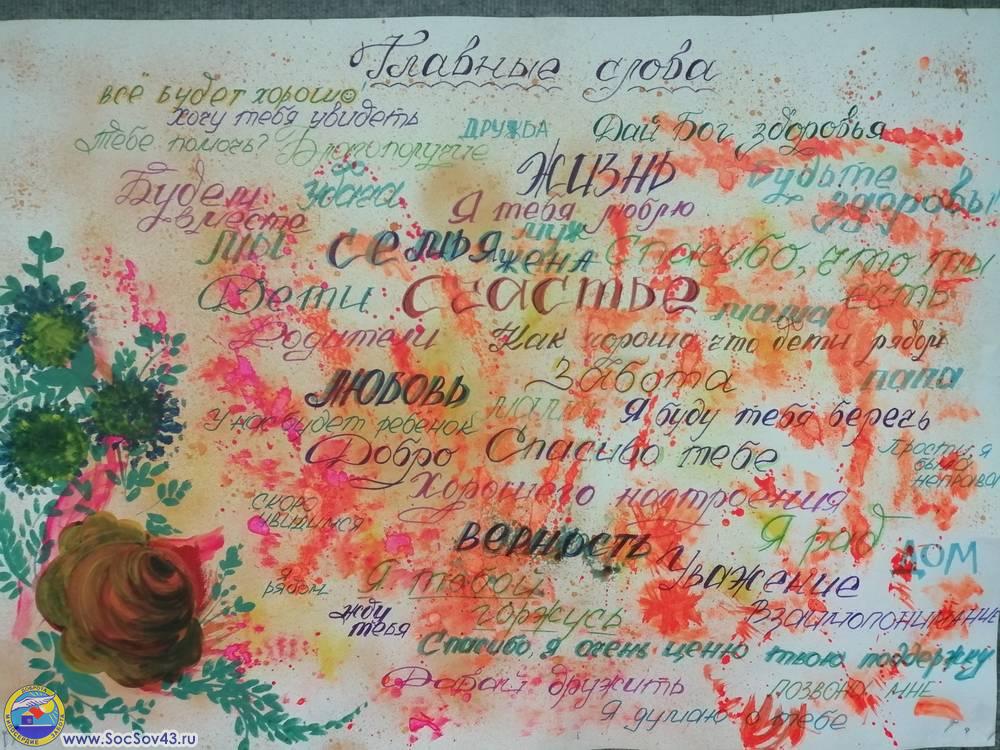 Главные слова
всё будет хорошо!
хочу тебя увидеть
ДРУЖБА
Дай Бог здоровья
Тебе помочь? Благополучие
ЖИЗНЬ
Будьте здоровы!
Будем вместе
Я тебя люблю
мы
семья
муж
жена
Спасибо, что ты есть
Дети
Счастье
мама
Родители
Как хорошо что дети рядом
ЛЮБОВЬ
Забота
папа
У нас будет ребёнок
Я буду тебя беречь
Добро
Спасибо тебе
Прости, я была неправа
Хорошего настроения
скоро увидимся
верность
Я рад
ДОМ
Уважение
Я рядом
Я тобой горжусь
жду тебя
Взаимопонимание
Спасибо, я очень ценю твою поддержку
Давай дружить
ПОЗВОНИ МНЕ
Я думаю о тебе
ДОБРОТА
МИЛОСЕРДИЕ
ЗАБОТА
www.SocSov43.ru